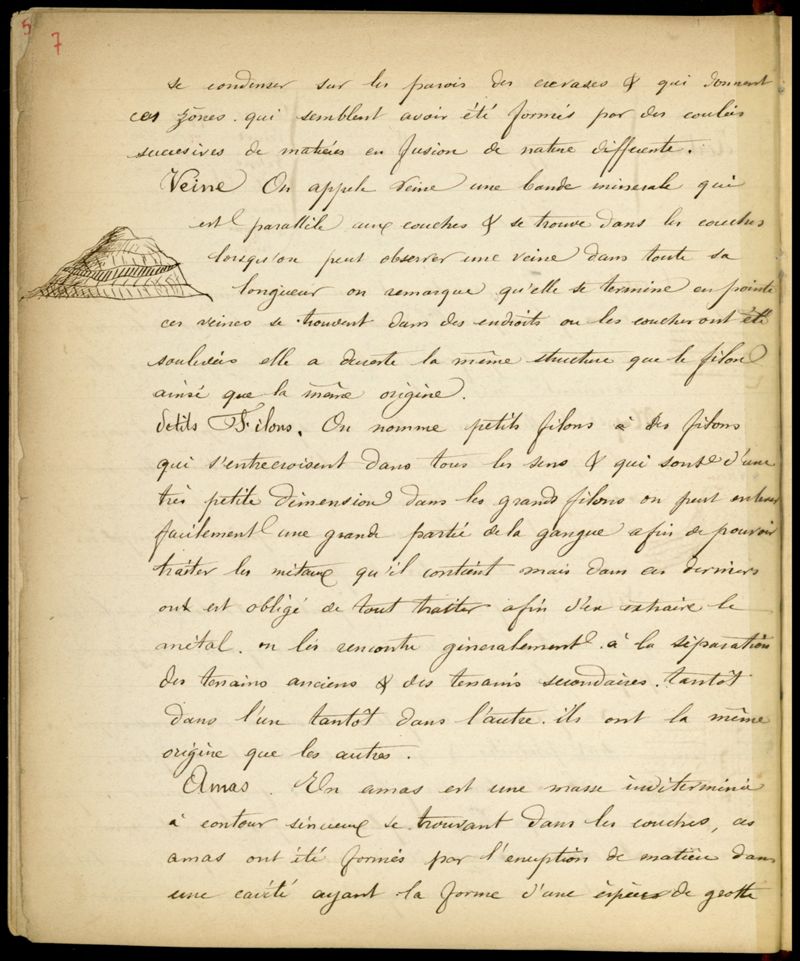 5
7
se condenser sur les parois des crevases & qui donnent
ces zônes. qui semblent avoir été formés par des coulées
succesives de matieres en fusion de nature differente.
Veine On appele veine une bande minerale qui
est parallèle aux couches & se trouve dans les couches
lorsqu'on peut observer une veine dans toute sa
longueur on remarque qu'elle se termine en pointe
ces veines se trouvent dans des endroits ou les couches ont été
soulevées elle a du reste la même structure que le filon
ainsi que la même origine.
Petits Filons. On nomme petits filons à des filons
qui s'entrecroisent dans tous les sens & qui sont d'une
très petite dimension dans les grands filons on peut enlever
facilement une grande partie de la gangue afin de pouvoir
traiter les métaux qu'il contient mais dans ces derniers
on est obligé de tout traiter afin d'en extraire le
métal. on les rencontre géneralement à la séparation
des terrains anciens & des terrains secondaires. tantôt
dans l'un tantôt dans l'autre. ils ont la même
origine que les autres.
Amas. Un amas est une masse indéterminée
à contour sinueux se trouvant dans les couches, ces
amas ont été formés par l'eruption de matière dans
une cavité ayant la forme d'une espèce de grotte